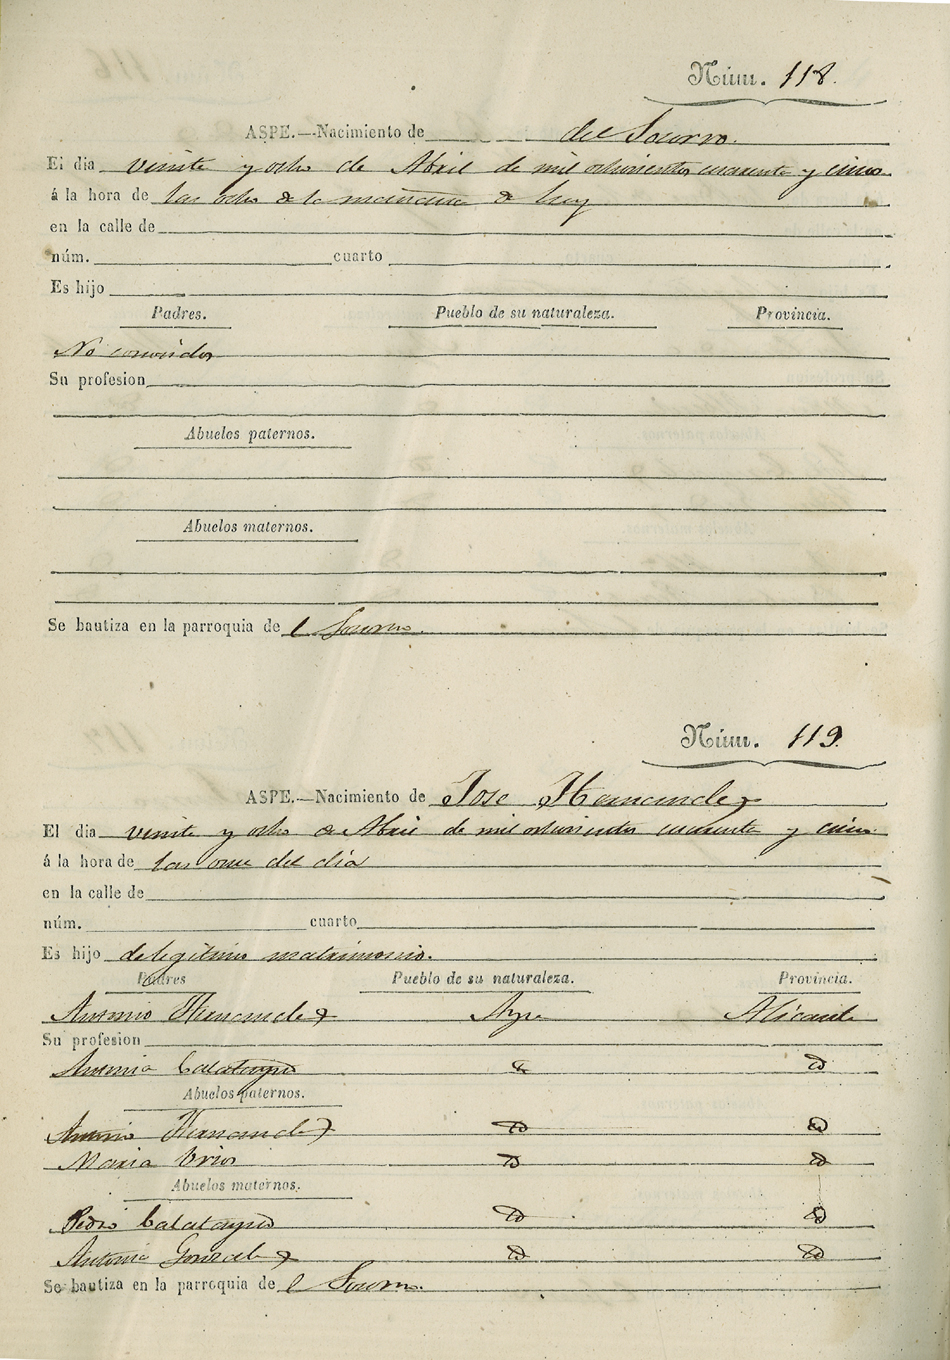 Núm. 118.
ASPE.—Nacimiento de del Socorro.
El dia veinte y ocho de Abril de mil ochocientos cuarenta y cinco
á la hora de las ocho de la mañana de hoy
en la calle de
núm. cuarto
Es hijo
Padres. Pueblo de su naturaleza. Provincia.
No conocidos
Su profesion
Abuelos paternos.
Abuelos maternos.
Se bautiza en la parroquia de l Socorro.
Núm. 119.
ASPE.—Nacimiento de Jose Hernandez
El dia veinte y ocho de Abril de mil ochocientos cuarenta y cinco
á la hora de las once del dia
en la calle de
núm. cuarto
Es hijo de legitimo matrimonio.
Padres Pueblo de su naturaleza. Provincia.
Antonio Hernandez Aspe Alicante
Su profesion
Antonia Calatayud id id
Abuelos paternos.
Antonio Hernandez id id
Maria id id
Abuelos maternos.
Pedro Calatayud id id
Antonia Gonzalez id id
Se bautiza en la parroquia de l Socorro.